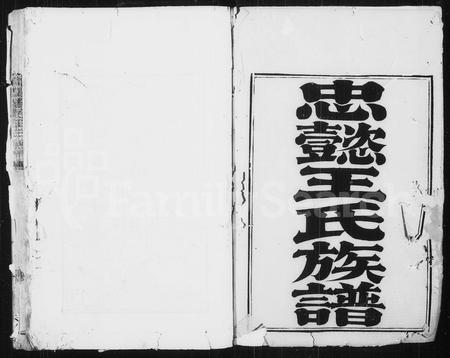 忠懿王氏族譜
FamilySearch